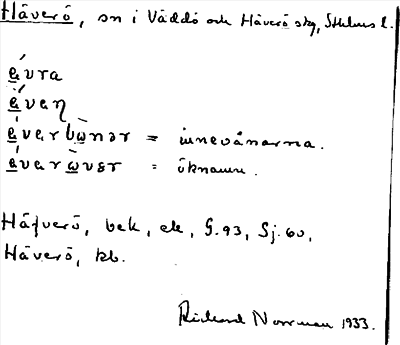 Häverö, sn i Väddö och Häverö skg, Sthlms l.
é̱vra
é̱veŋ
é̱verbὼ̱nər = innevånarna.
é̱verὼ̱vɛr = öknamn.
Häfverö, bek, ek, G.93, Sj.60,
Häverö, kb.
Richard Norrman 1933.